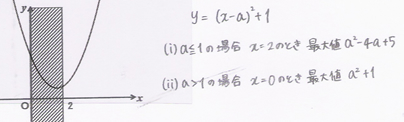 y
y = (x-a)²+1
(i) a≦1の場合 x=2のとき 最大値 a²-4a+5
(ii) a>1の場合 x=0のとき 最大値 a²+1
O 2 x